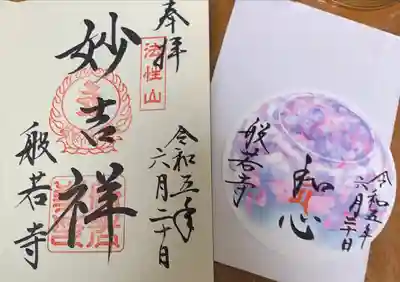 奉拝
法性山
妙吉祥
令和五年
六月二十日
般若寺
令和五年
六月二十日
和心
般若寺